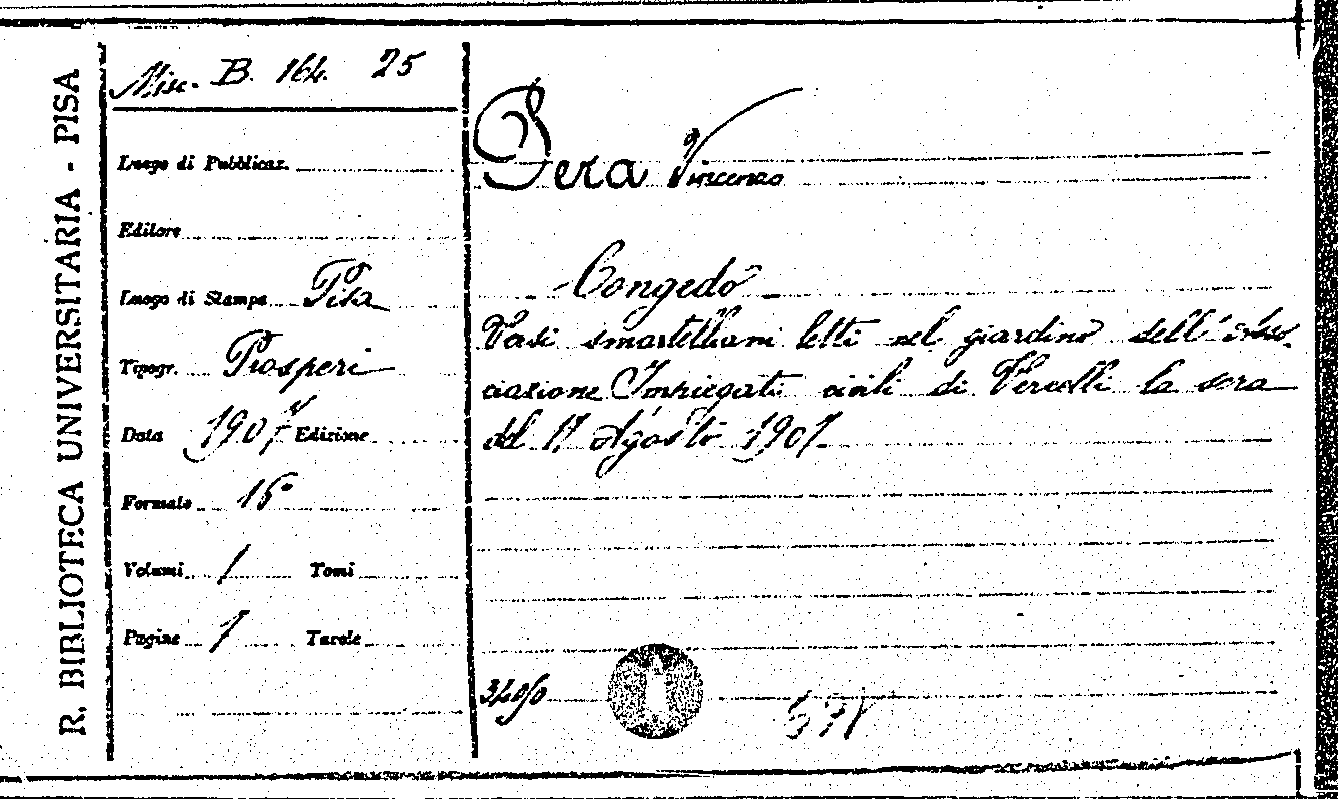 R. BIBLIOTECA UNIVERSITARIA - PISA
Misc. B. 164. 25
Luogo di Pubblicaz.
Editore
Luogo di Stampa Pisa
Tipogr. Prosperi
Data 1907 Edizione
Formato 16°
Volumi 1 Tomi
Pagine 7 Tavole
Pera Vincenzo
Congedo
Versi smartelliani letti nel giardino dell'Asso-
ciazione Impiegati civili di Vercelli la sera
del 17 Agosto 1907